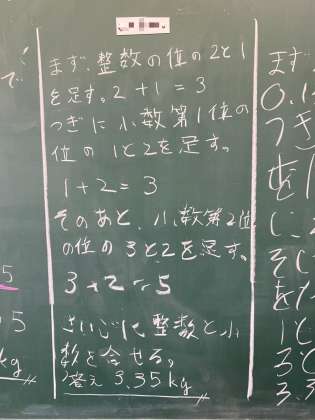 まず、整数の位の2と1
を足す。2+1=3
つぎに小数第1位の
位の1と2を足す。
1+2=3
そのあと、小数第2位
の位の3と2を足す。
3+2=5
さいごに整数と小
数を合せる。
答え 3.35kg
で
5
5
kg
まず
0.1
つき
を
に
そし
をた
1と
3.